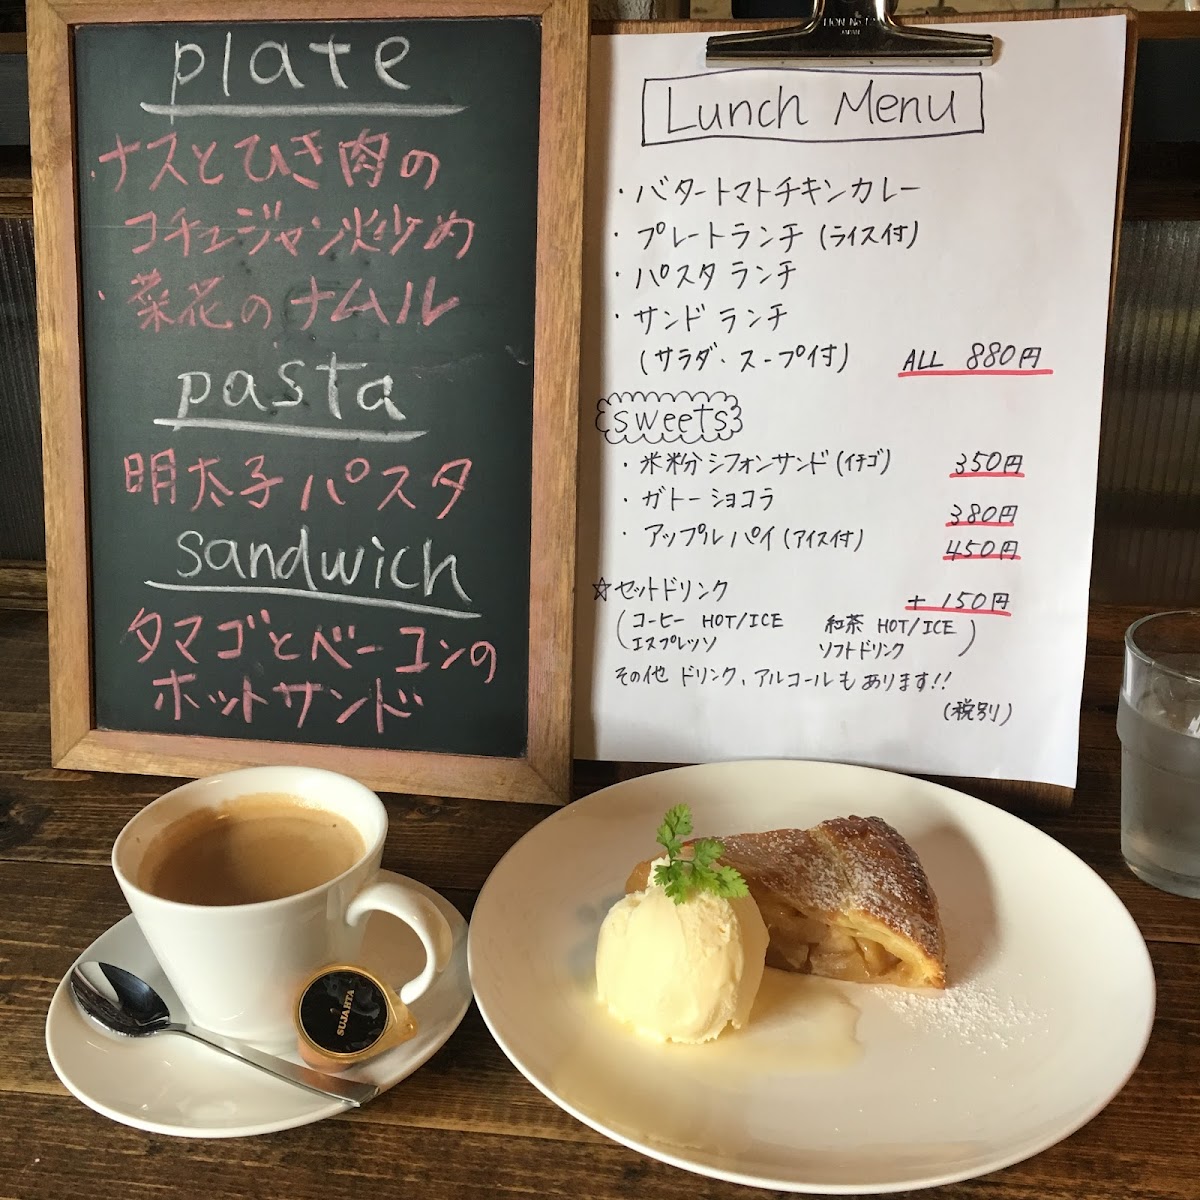 plate
・ナスとひき肉の
コチュジャン炒め
・菜花のナムル
pasta
明太子パスタ
sandwich
タマゴとベーコンの
ホットサンド
LION No.
JAPAN
Lunch Menu
・バタートマトチキンカレー
・プレートランチ (ライス付)
・パスタ ランチ
・サンド ランチ
(サラダ・スープ付) ALL 880円
sweets
・米粉シフォンサンド(イチゴ) 350円
・ガトーショコラ 380円
・アップルパイ(アイス付) 450円
☆セットドリンク +150円
(コーヒー HOT/ICE 紅茶 HOT/ICE
エスプレッソ ソフトドリンク)
その他 ドリンク、アルコールもあります!!
(税別)
SUJAHTA